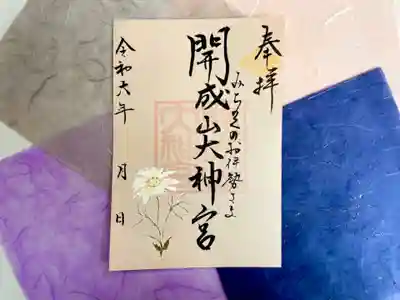 奉拝
みちのくのお伊勢さま
開成山大神宮
令和六年 月 日